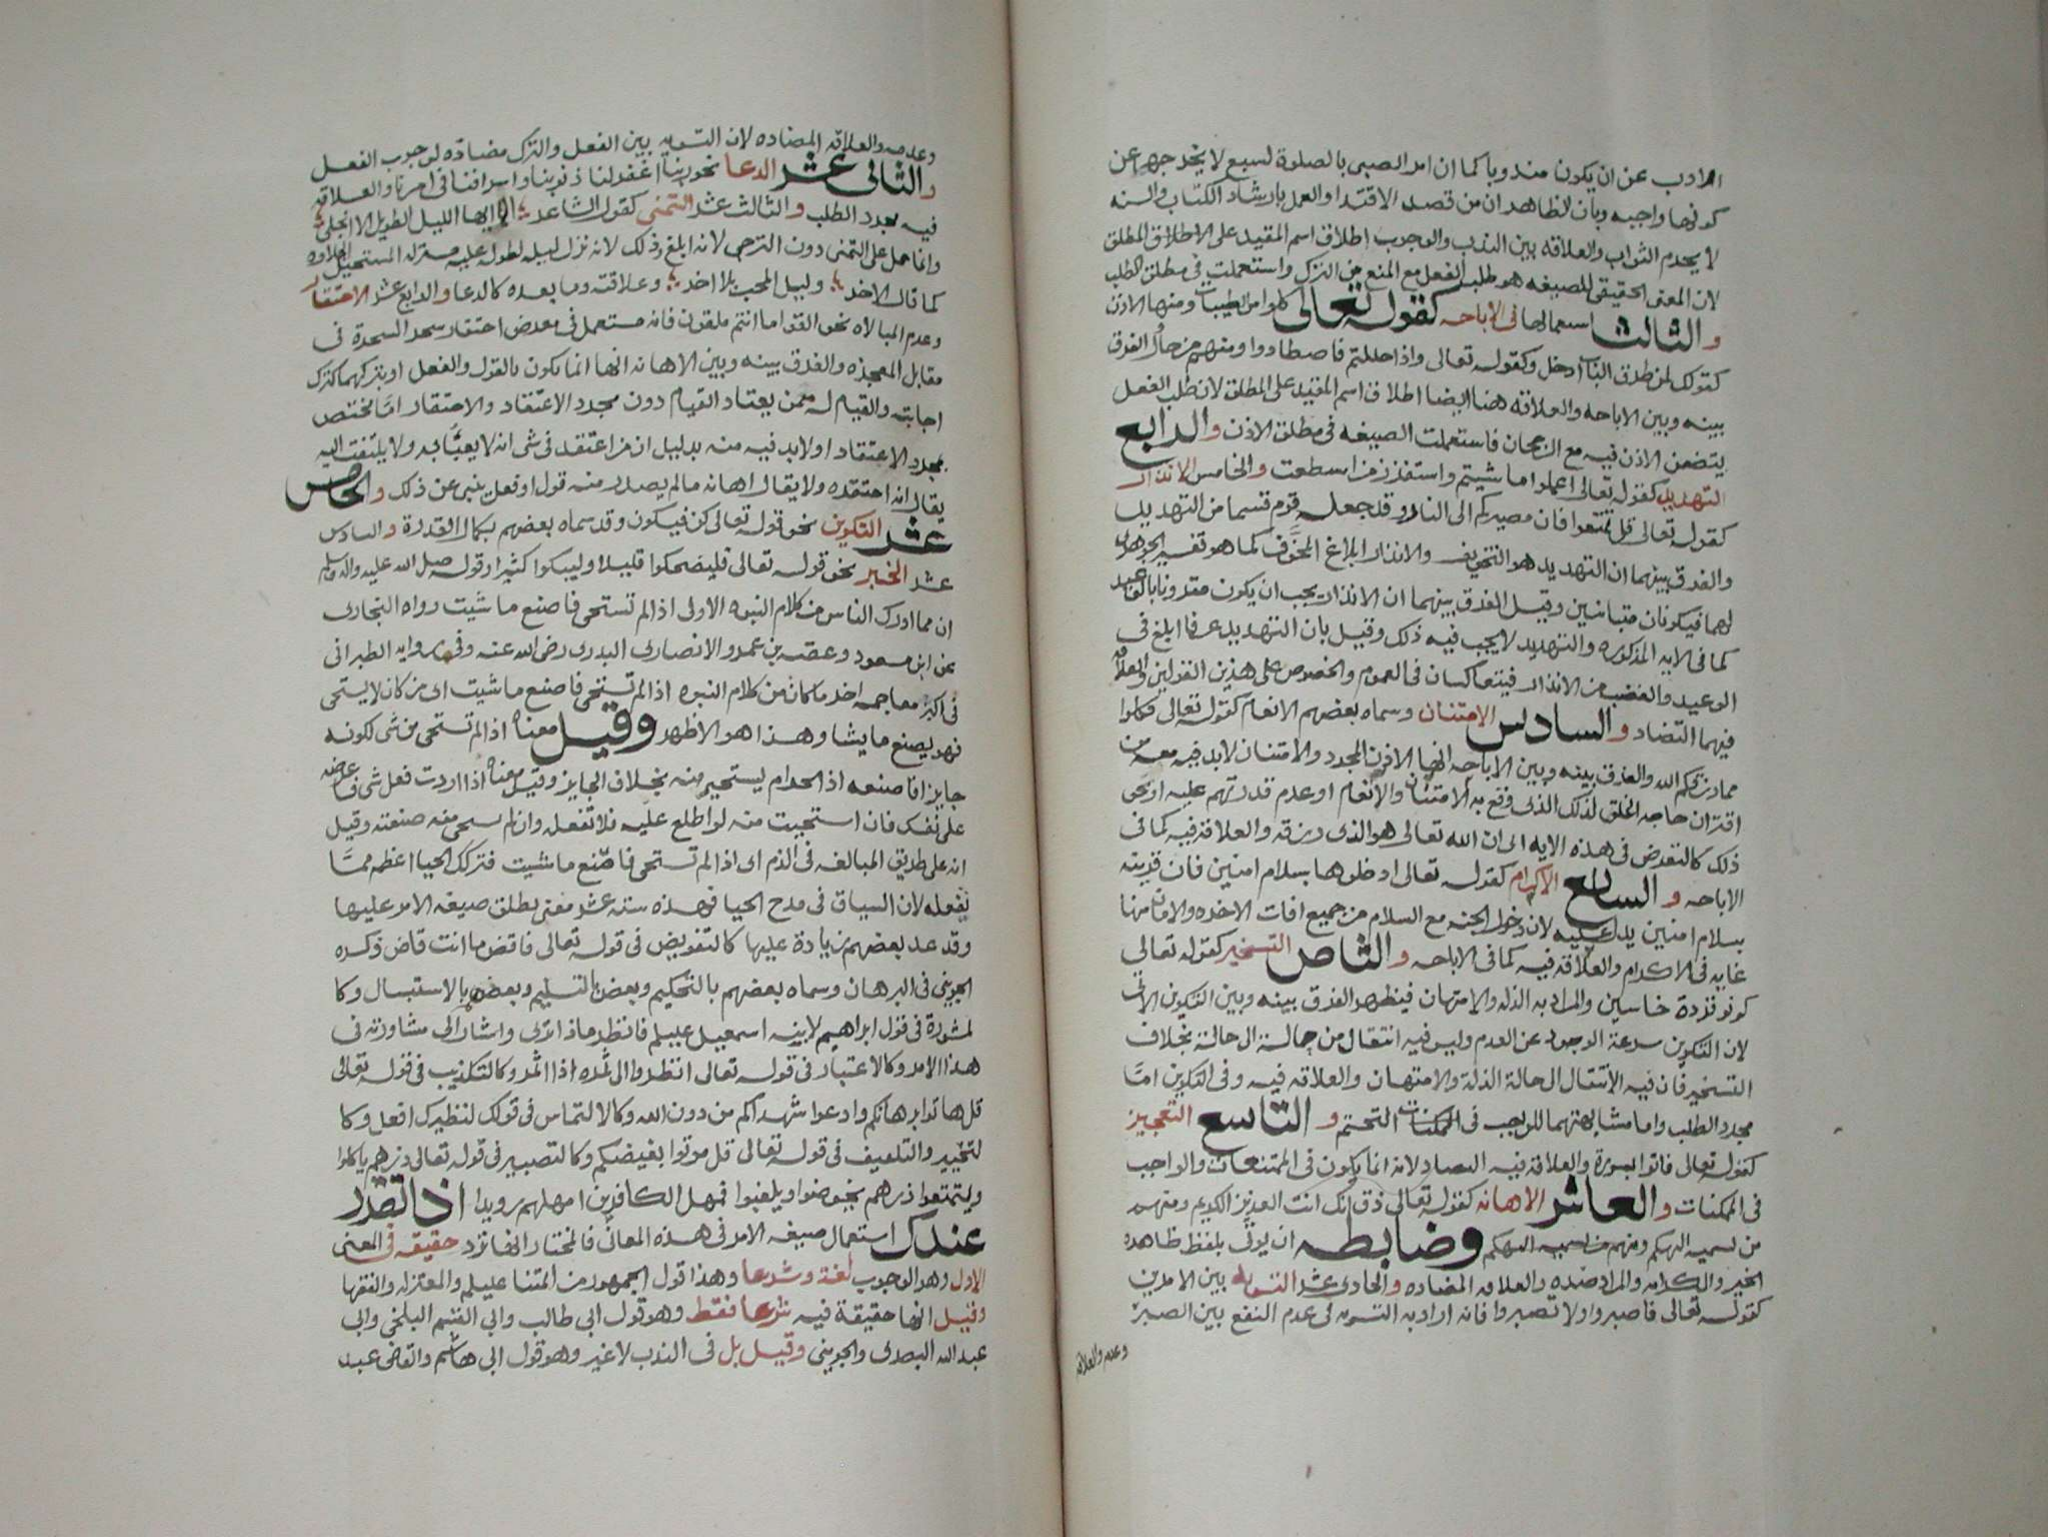 الادب عن ان يكون مندوبا كما ان امر الصبي بالصلوة لسبع لا يخرجها عن
كونها واجبه وبان الظاهر ان من قصد الاقتدا والعمل بارشاد الكتاب والسنه
لا يحرم الثواب والعلاقه بين الندب والوجوب اطلاق اسم المقيد على الاطلاق المطلق
لان المعنى الحقيقي للصيغه هو طلب الفعل مع المنع من الترك واستعملت في مطلق الطلب
والثالث استعمالها في الاباحه كقوله تعالى كلوا من الطيبات ومنها الاذن
كقولك لمن طرق الباب ادخل وكقوله تعالى واذا حللتم فاصطادوا ومنهم من حاول الفرق
بينه وبين الاباحه والعلاقه هنا ايضا اطلاق اسم المقيد على المطلق لان طلب الفعل
يتضمن الاذن فيه مع الرجحان فاستعملت الصيغه في مطلق الاذن والرابع
التهديد كقوله تعالى اعملوا ما شيتم واستفزز من استطعت والخامس الانذار
كقوله تعالى قل تمتعوا فان مصيركم الى النار وقد جعله قوم قسما من التهديد
والفرق بينهما ان التهديد هو التخويف والانذار ابلاغ المخوف كما هو تفسير الجوهري
لهما فيكونان متباينين وقيل الفرق بينهما ان الانذار يجب ان يكون مقرونا بالوعيد
كما في الايه المذكوره والتهديد لا يجب فيه ذلك وقيل بان التهديد عرفا ابلغ في
الوعيد والغضب من الانذار فيتعاكسان في العموم والخصوص على هذين القولين والعلاقه
فيهما التضاد والسادس الامتنان وسماه بعضهم الانعام كقوله تعالى فكلوا
مما رزقكم الله والفرق بينه وبين الاباحه انها الاذن المجرد والامتنان لابد فيه معه من
اقتران حاجه الخلق لذلك الذي وقع به الامتنان والانعام او عدم قدرتهم عليه او نحو
ذلك كالتعرض في هذه الايه الى ان الله تعالى هو الذي رزقه والعلاقه فيه كما في
الاباحه والسابع الاكرام كقوله تعالى ادخلوها بسلام امنين فان قرينه
بسلام امنين يدل عليه لان دخول الجنه مع السلام من جميع افات الاخره والامان منها
غايه في الاكرام والعلاقه فيه كما في الاباحه والثامن التسخير كقوله تعالى
كونو قردة خاسين والمراد به الذله والامتهان فيظهر الفرق بينه وبين التكوين الاتي
لان التكوين سرعة الوجود عن العدم وليس فيه انتقال من حالة الى حالة بخلاف
التسخير فان فيه الانتقال الى حالة الذلة والامتهان والعلاقه فيه وفي التكوين اما
مجرد الطلب واما مشابهتهما للواجب في التحتم والتاسع التعجيز
كقوله تعالى فاتوا بسورة والعلاقه فيه التضاد لانه انما يكون في الممتنعات والواجب
في الممكنات والعاشر الاهانه كقوله تعالى ذق انك انت العزيز الكريم ومنهم
من يسميه التهكم وضابطه ان يوتى بلفظ ظاهره
الخير والكرامه والمراد ضده والعلاقه المضاده والحادي عشر التسويه بين الامرين
كقوله تعالى فاصبروا اولا تصبروا فانه اراد به التسويه في عدم النفع بين الصبر
وعدمه والعلاقه
وعدمه والعلاقه المضاده لان التسويه بين الفعل والترك مضاده لوجوب الفعل
والثاني عشر الدعا نحو ربنا اغفر لنا ذنوبنا واسرافنا في امرنا والعلاقه
فيه مجرد الطلب والثالث عشر التمني كقول الشاعر الا ايها الليل الطويل الا انجلي
وانما حمل على التمني دون الترجي لانه ابلغ وذلك لانه نزل ليله لطوله عليه منزله المستحيل انجلاوه
كما قال الاخر وليل المحب بلا اخر وعلاقته وما بعده كالدعا والرابع عشر الاحتقار
وعدم المبالاه نحو القوا ما انتم ملقون فانه مستعمل في معرض احتقار سحر السحرة في
مقابل المعجزه والفرق بينه وبين الاهانه انها انما يكون بالقول والفعل او بتركهما كترك
اجابته والقيام له ممن يعتاد القيام دون مجرد الاعتقاد والاحتقار اما مختص
بمجرد الاعتقاد او لابد فيه منه بدليل ان من اعتقد في شي انه لا يعبأ به ولا يلتفت اليه
يقال انه احتقره ولا يقال اهانه ما لم يصدر منه قول او فعل ينبي عن ذلك والخامس
عشر التكوين نحو قوله تعالى كن فيكون وقد سماه بعضهم بكمال القدرة والسادس
عشر الخبر نحو قوله تعالى فليضحكوا قليلا وليبكوا كثيرا وقوله صلى الله عليه واله وسلم
ان مما ادرك الناس من كلام النبوه الاولى اذا لم تستحي فاصنع ما شيت رواه البخاري
عن ابن مسعود وعقبه بن عمرو الانصاري البدري رضي الله عنه وفي روايه الطبراني
في اكبر معاجمه اخر ما كان من كلام النبوه اذا لم تستحي فاصنع ما شيت اي من كان لا يستحي
فهو يصنع ما يشا وهذا هو الاظهر وقيل معناه اذا لم تستحي من شي لكونه
جايزا فاصنعه اذ الحرام يستحيى منه بخلاف الجايز وقيل معناه اذا اردت فعل شي فاعرضه
على نفسك فان استحييت منه لو اطلع عليه فلا تفعله وان لم تستحي منه صنعته وقيل
انه على طريق المبالغه في الذم اي اذا لم تستحي فاصنع ما شيت فتركك الحيا اعظم مما
تفعله لان السياق في مدح الحيا فهذه سته عشر معنى يطلق صيغه الامر عليها
وقد عد بعضهم زيادة عليها كالتفويض في قوله تعالى فاقض ما انت قاض ذكره
الجويني في البرهان وسماه بعضهم بالتحكيم وبعض التسليم وبعضهم بالاستبسال وكا
لمشورة في قول ابراهيم لابنه اسمعيل عليلم فانظر ماذا ترى واشار الى مشاورته في
هذا الامر وكالاعتبار في قوله تعالى انظروا الى ثمره اذا اثمر وكالتكذيب في قوله تعالى
قل هاتوا برهانكم وادعوا شهداكم من دون الله وكالالتماس في قولك لنظيرك افعل وكا
لتخيير والتلهيف في قوله تعالى قل موتوا بغيضكم وكالتصبير في قوله تعالى ذرهم ياكلوا
ويتمتعوا ذرهم يخوضوا ويلعبوا فمهل الكافرين امهلهم رويدا اذا تقرر
عندك استعمال صيغه الامر في هذه المعاني فالمختار انها ترد حقيقه في المعنى
الاول وهو الوجوب لغة وشرعا وهذا قول الجمهور من ائمتنا عليلم والمعتزله والفقها
وقيل انها حقيقة فيه شرعا فقط وهو قول ابي طالب وابي القسم البلخي وابي
عبد الله البصري والجويني وقيل بل في الندب لا غير وهو قول ابي هاشم والقاضي عبد